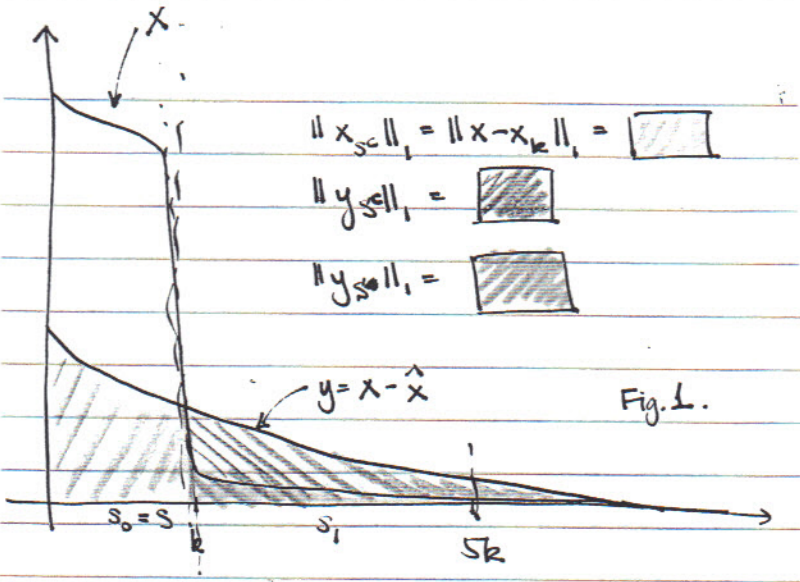 X
‖x_{S^c}‖₁ = ‖x-x_k‖₁ =
‖y_{S^c}‖₁ =
‖y_S‖₁ =
y = x - x̂
Fig. 1.
S₀ = S
S₁
k
5k